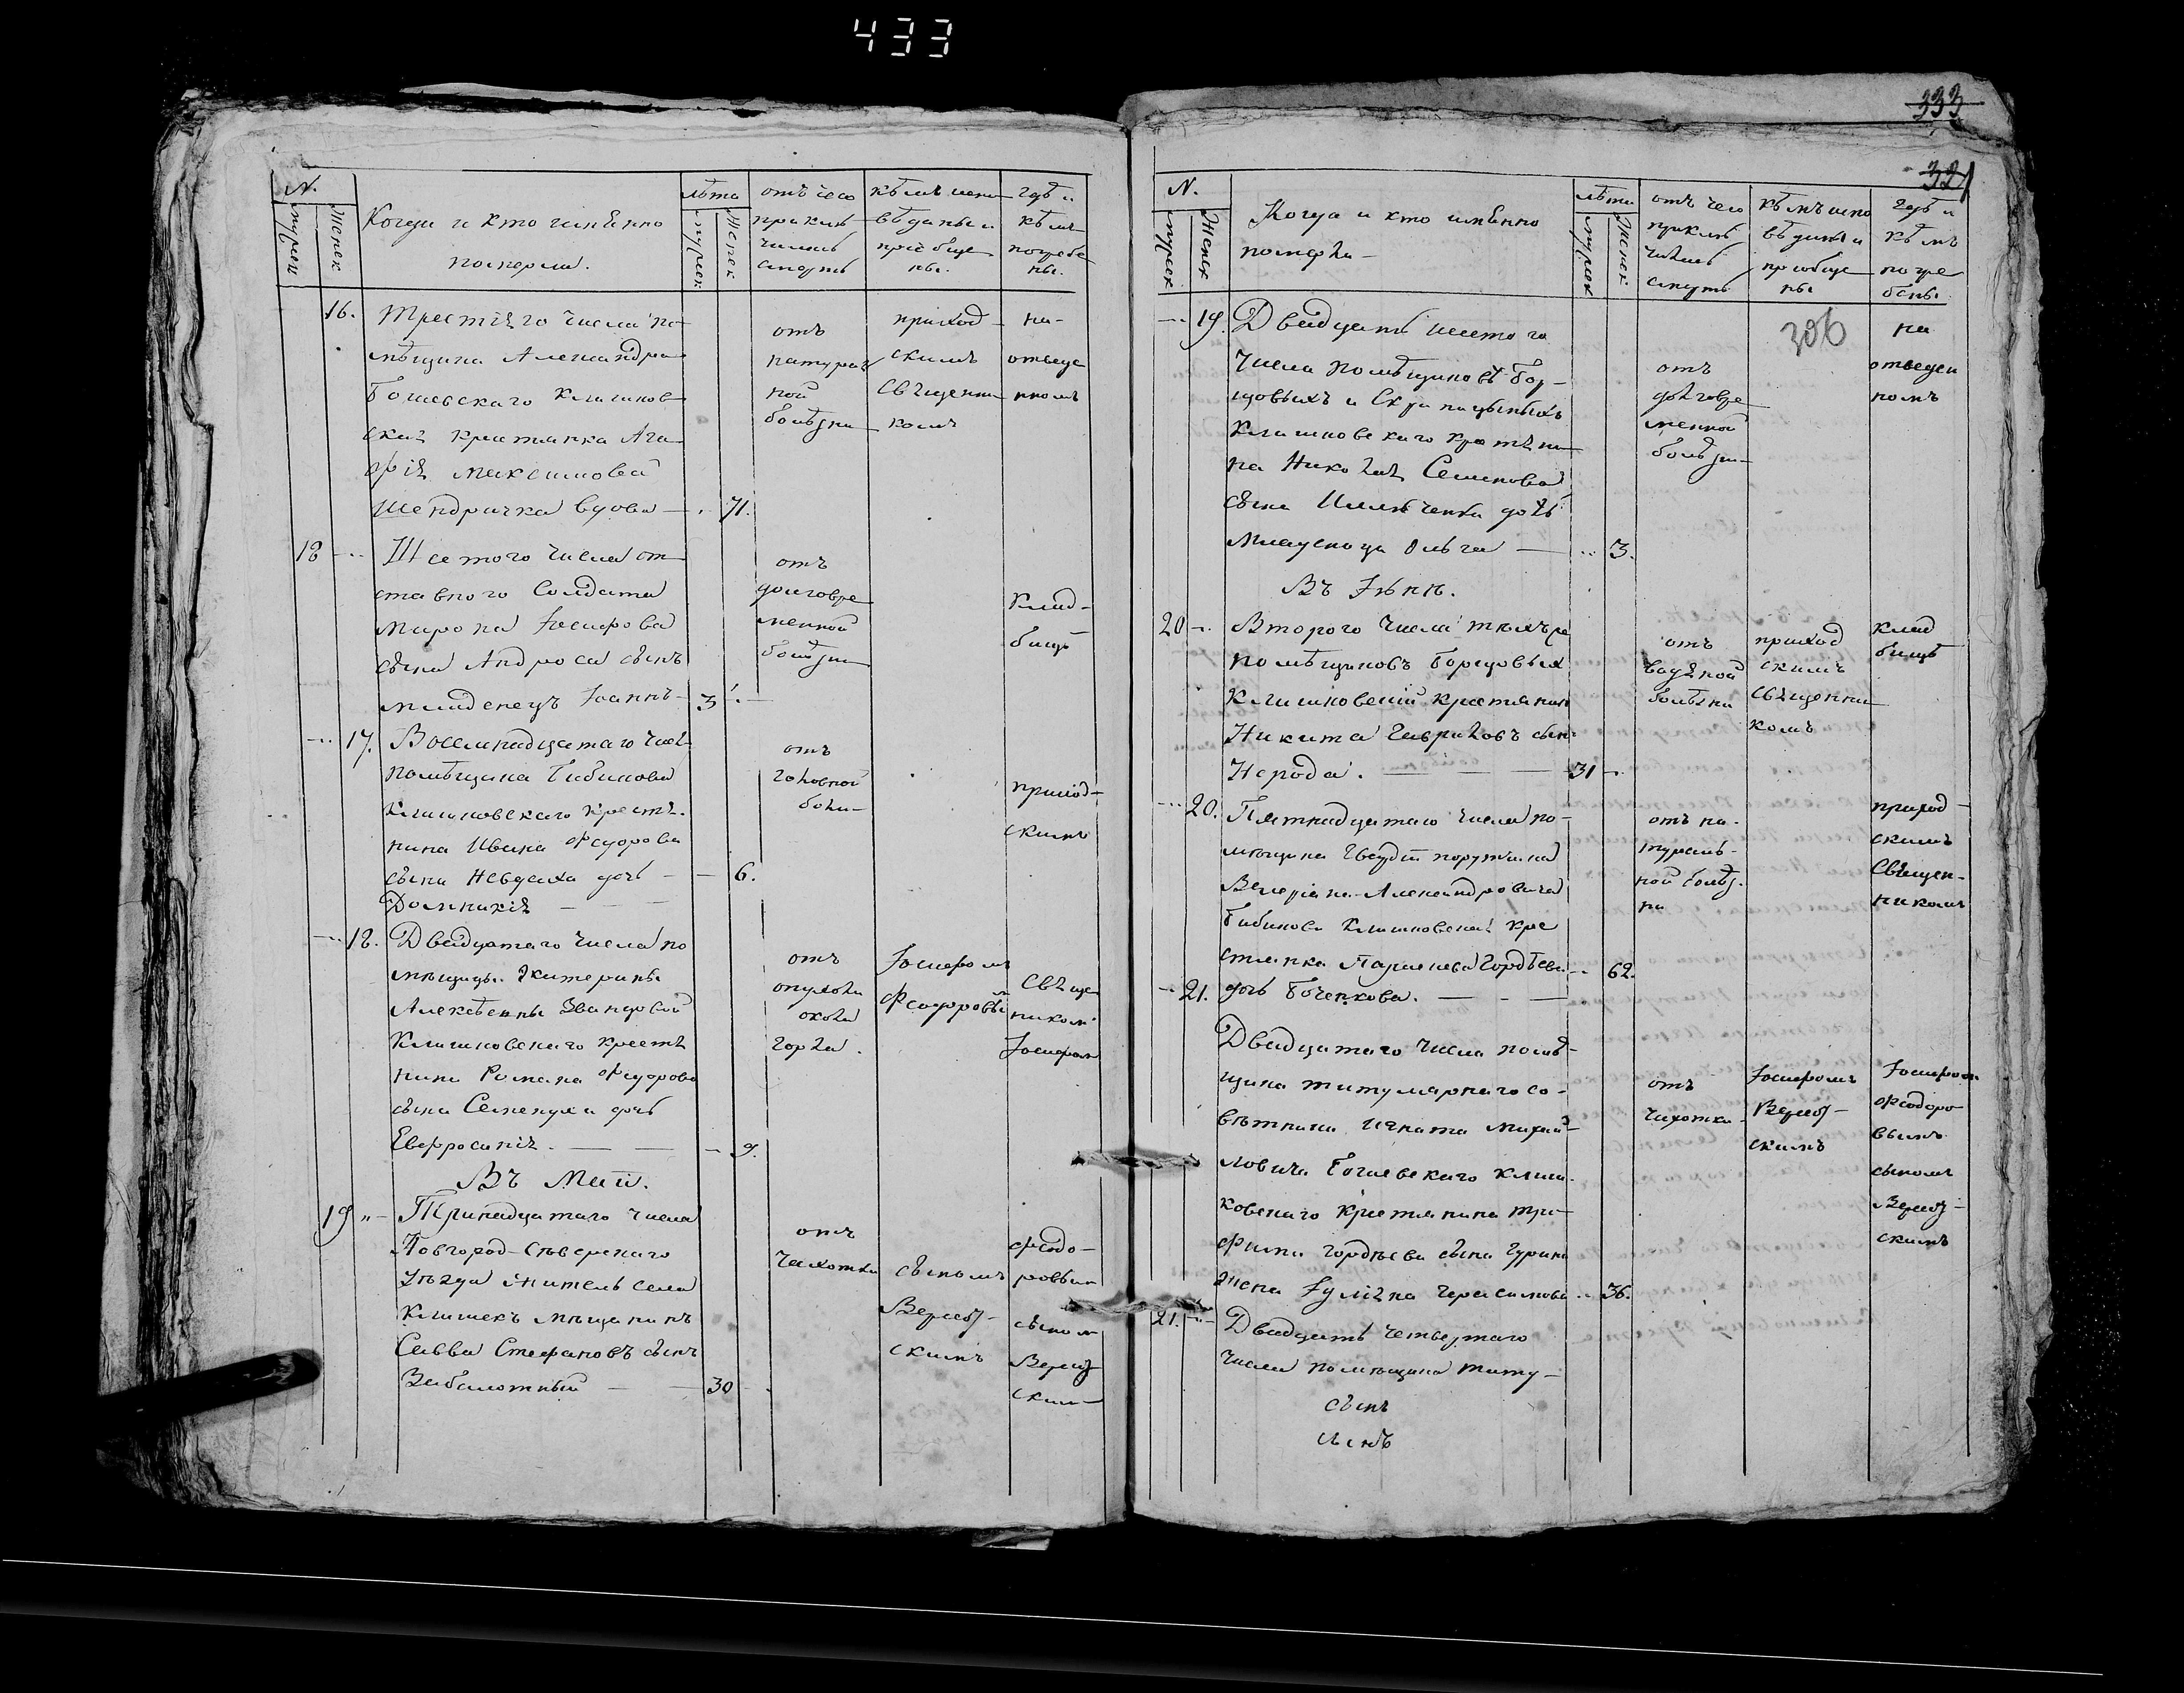 433
333
N.
мужеск
женск
Когда и кто именно
померли.
лѣта
мужеск
женск
отъ чего
приклю
чилась
смерть
кѣмъ испо
вѣданы и
пріобще
ны.
гдѣ и
кѣмъ
погребе
ны.
16. Третяго числа по
мѣщика Александра
Гошевскаго Клишков
ская крестянка Ага
фія Максимова
Шендричка вдова — 71.
отъ
натураль
ной
болѣзни
приход
скимъ
Священни
комъ
на
отведе
нномъ
18 Шестого числа от
ставного Солдата
Мирона Іосифова
сына Андроса сынъ
младенецъ Іоаннъ — 3
отъ
долговре
менной
болѣзни
клад-
бищѣ
17. Восемнадцатаго числ
помѣщика Бибикова
Клишковскаго крестя
нина Ивана Федорова
сына дочь — 6.
Домникія — — —
отъ
головной
боли
приход-
скимъ
18. Двадцатаго числа по
мѣщицы Екатерины
Алексѣевны
Клишковскаго крестя
нина Романа Федорова
сына Семенухи дочь
Евфросинія — — 9.
отъ
опухоли
около
горла.
Іосифомъ
Феодоровы
Свяще
ником
Іосифом
Въ Маіи.
19 Тринадцатаго числа
Новгород-Сѣверскаго
уѣзда житель села
Клишекъ мѣщанинъ
Савва Стефановъ сынъ
Заболотный — — 30
отъ
чахотки
сыномъ
скимъ
Феодо-
ровым
сыном
ским
N.
мужеск
женск
Когда и кто именно
померли —
лѣта
мужеск
женск
отъ чего
приклю
чилась
смерть
кѣмъ испо
вѣданы и
приобще
ны
гдѣ и
кѣмъ
погре
бены
306
19. Двадцать шестого
числа помѣщиковъ Бор-
щовыхъ и
Клишковскаго крестяни
на Николая Семенова
сына дочь
младеница Ольга — 3.
отъ
долговре
менной
болѣзни
на
отведен
номъ
Въ Іюнѣ.
20 Второго числа тѣхъ же
помѣщиковъ Борщовых
Клишковский крестянин
Никита Гавриловъ сын
Нерода. — — 31
отъ
водяной
болѣзни
приход
скимъ
Священни
комъ
клад
бищѣ
20. Пятнадцатаго числа по-
мѣщика Гвардіи поручика
Валеріана Александровича
Бибикова Клишковская кре
стянка Гордѣева 62.
21. дочь Боченкова. — - —
отъ на-
тураль-
ной болѣз-
ни
приход
скимъ
Священ-
никомъ
Двадцатаго числа помѣ-
щика титулярнаго со-
вѣтника Игната Михай-
ловича Гошевскаго Клиш-
ковскаго крестянина Тро-
фима Гордѣева сына Гурина
жена Іуліяна Герасимова 36.
отъ
чахотки
Іосифомъ
скимъ
Іосифом
Феодоро
вымъ
сыномъ
скимъ
21. Двадцать четвертаго
числа помѣщика титу-
сынъ
сынъ